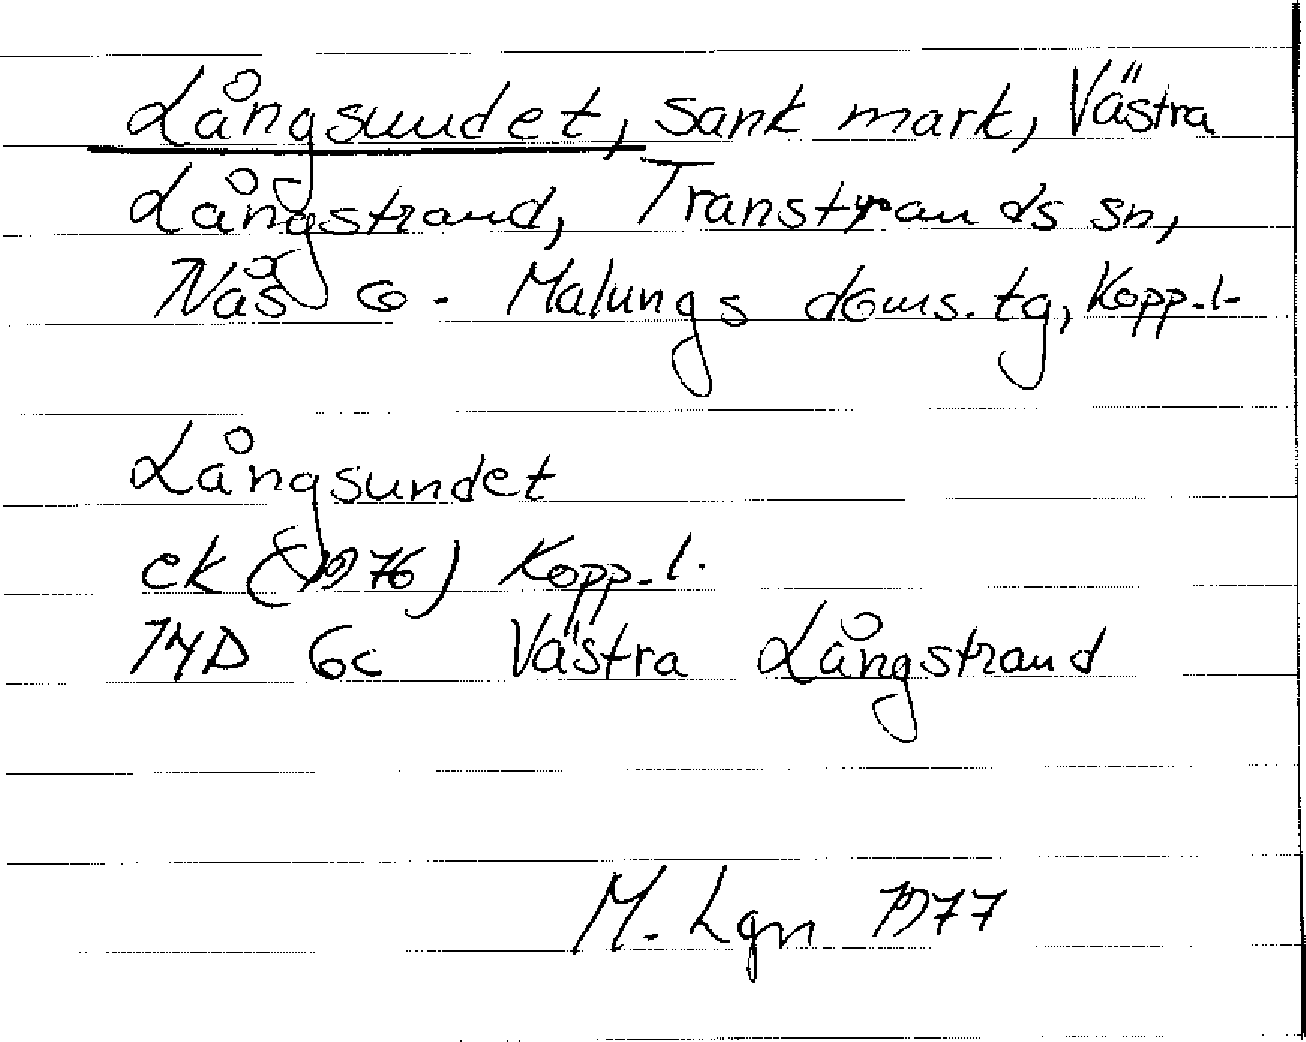 Långsundet, sank mark, Västra
Långstrand, Transtrands sn,
Nås o. Malungs doms. tg, Kopp.l.
Långsundet
ek (1976) Kopp.l.
14D 6c Västra Långstrand
M. Lgn 1977